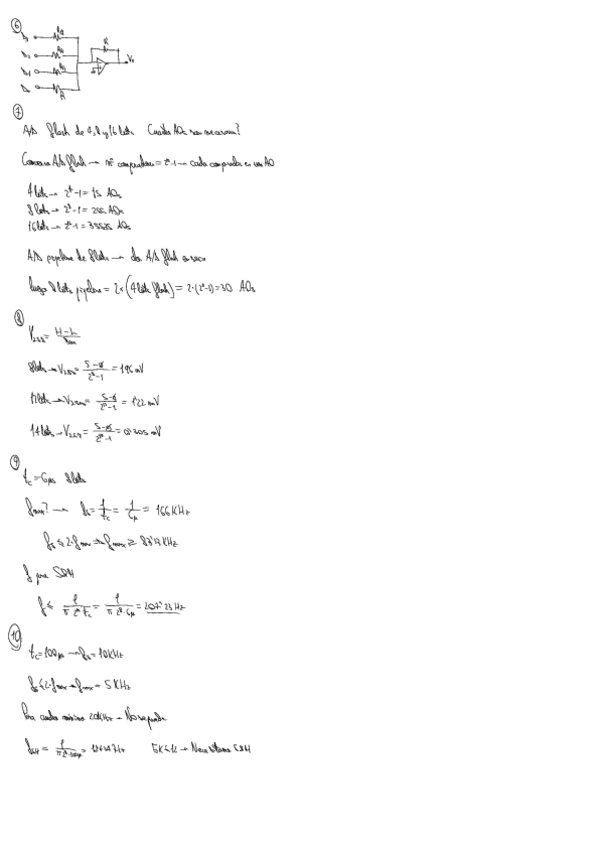 6
R
R
V₀
7
A/D flash de 4, 8 y 16 bits ¿Cuántos AOs son necesarios?
Conversor A/D flash → nº comparadores = 2ⁿ-1 → cada comparador es un AO
4 bits → 2⁴-1 = 15 AOs
8 bits → 2⁸-1 = 255 AOs
16 bits → 2¹⁶-1 = 65535 AOs
A/D pipeline de 8 bits → dos A/D flash
luego 8 bits pipeline = 2x (4 bits flash) = 2·(2⁴-1) = 30 AOs
8
V_LSB = H-L
8 bits → V_LSB = 5-0 / 2⁸-1 = 19'6 mV
12 bits → V_LSB = 5-0 / 2¹²-1 = 1'22 mV
14 bits → V_LSB = 5-0 / 2¹⁴-1 = 0'305 mV
9
t_c = 6μs 8 bits
f_max? → f_s = 1/t_c = 1/6μ = 166 KHz
f_s ≤ 2·f_max → f_max ≥ 83'3 KHz
f para S&H
f ≤ 1/π 2⁸ t_c = 1/π 2⁸ 6μ = 207'23 Hz
10
t_c = 100μs → f_s = 10KHz
f_s ≤ 2·f_max → f_max = 5 KHz
Para audio mínimo 20KHz → No se puede
f_SH = 1 = 12'43 Hz → Necesitamos S&H